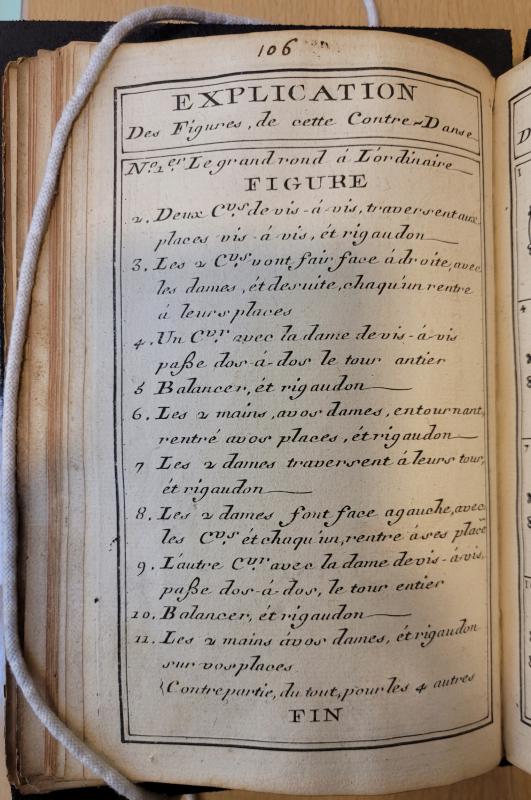 106
EXPLICATION
Des Figures, de cette Contre-Danse
No. 1er Le grand rond á L'ordinaire
FIGURE
2. Deux Cvrs de vis-á-vis, traversent aux
places vis-á-vis, ét rigaudon
3. Les 2 Cvrs vont fair face ádroite, avec
les dames, ét desuite, chaqu'un rentre
á leurs places
4. Un Cvr avec la dame de vis-á-vis
paße dos-á-dos le tour antier
5 Balancer, ét rigaudon
6. Les 2 mains, avos dames, entournant,
rentré avos places, ét rigaudon
7 Les 2 dames traversent á leurs tour,
ét rigaudon
8. Les 2 dames font face agauche, avec
les Cvrs ét chaqu'un, rentre áses place
9. L'autre Cvr avec la dame de vis-á-vis,
paße dos-á-dos, le tour entier
10. Balancer, ét rigaudon
11. Les 2 mains ávos dames, ét rigaudon
sur vos places
Contrepartie, du tout, pour les 4 autres
FIN